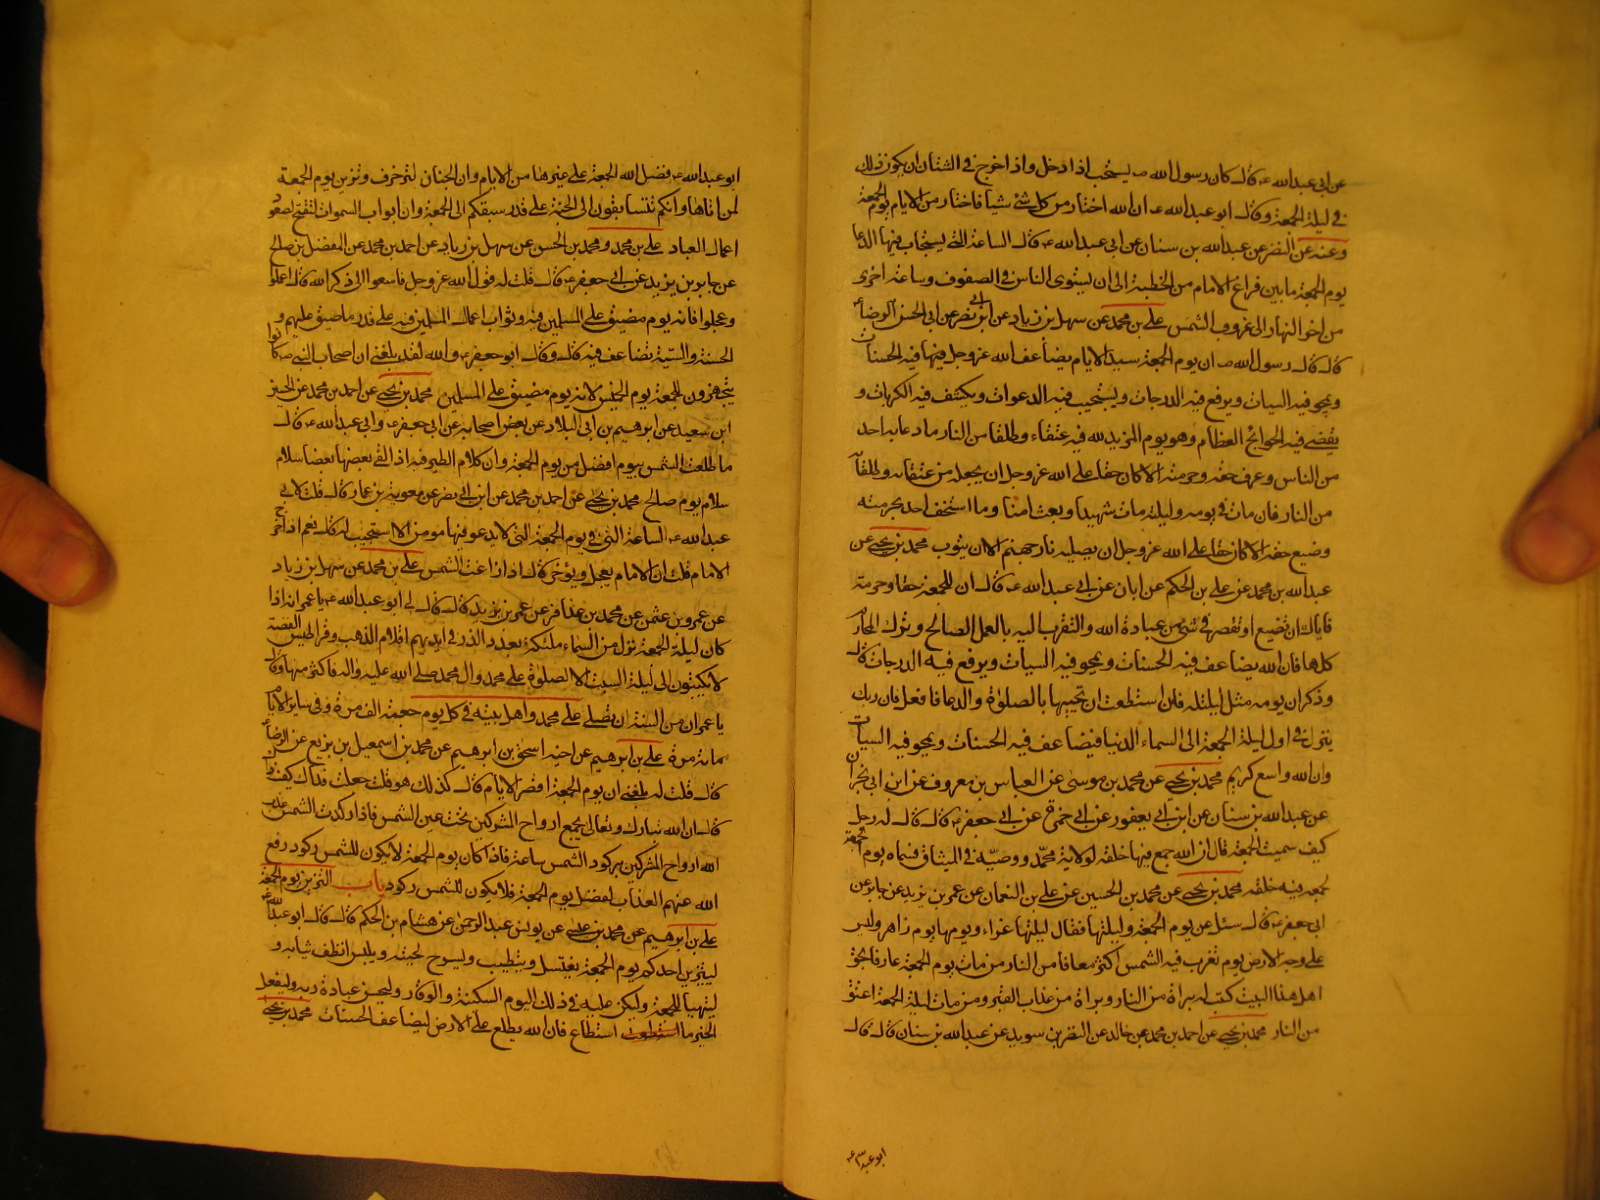 عن ابى عبدالله ع قال كان رسول الله ص يستحب اذا دخل واذا خرج فى الشتا ان يكون ذلك
فى ليلة الجمعة وقال ابو عبدالله ع ان الله اختار من كل شئ شيئا فاختار من الايام يوم الجمعة
وعنه عن النضر عن عبدالله بن سنان عن ابى عبدالله ع قال الساعة التى يستجاب فيها الدعا
يوم الجمعة ما بين فراغ الامام من الخطبة الى ان يستوى الناس فى الصفوف وساعة اخرى
من اخر النهار الى غروب الشمس على بن محمد عن سهل بن زياد عن ابن ابى نصر عن ابى الحسن الرضا ع
قال قال رسول الله ص ان يوم الجمعة سيد الايام يضاعف الله عز وجل فيها فيه الحسنات
ويمحو فيه السيات ويرفع فيه الدرجات ويستجيب فيه الدعوات ويكشف فيه الكربات و
يقضى فيه الحوائج العظام وهو يوم المزيد لله فيه عتقاء وطلقا من النار ما دعا به احد
من الناس وعرف حقه وحرمته الا كان حقا على الله عز وجل ان يجعله من عتقائه وطلقا
من النار فان مات فى يومه وليلته مات شهيدا وبعث امنا وما استخف احد بحرمته
وضيع حقه الا كان حقا على الله عز وجل ان يصليه نار جهنم الا ان يتوب محمد بن يحيى عن
عبدالله بن محمد عن على بن الحكم عن ابان عن ابى عبدالله ع قال ان للجمعة حقا وحرمة
فاياك ان تضيع او تقصر فى شئ من عبادة الله والتقرب اليه بالعمل الصالح وترك المحارم
كلها فان الله يضاعف فيه الحسنات ويمحو فيه السيات ويرفع فيه الدرجات قال
وذكر ان يومه مثل ليلته فان استطعت ان تحييها بالصلوة والدعا فافعل فان ربك
ينزل فى اول ليلة الجمعة الى السماء الدنيا فيضاعف فيه الحسنات ويمحو فيه السيات
وان الله واسع كريم محمد بن يحيى عن محمد بن موسى عن العباس بن معروف عن ابن ابى نجران
عن عبدالله بن سنان عن ابن ابى يعفور عن ابى حمزة عن ابى جعفر ع قال قال له رجل
كيف سميت الجمعة قال ان الله جمع فيها خلقه لولاية محمد ووصيه فى الميثاق فسماه يوم الجمعة
لجمعه فيه خلقه محمد بن يحيى عن محمد بن الحسين عن على بن النعمان عن عمر بن يزيد عن جابر عن
ابى جعفر ع قال سئل عن يوم الجمعة وليلتها فقال ليلتها غراء ويومها يوم زاهر وليس
على وجه الارض يوم تغرب فيه الشمس اكثر معافا من النار من مات يوم الجمعة عارفا بحق
اهل هذا البيت كتب له براة من النار وبراة من عذاب القبر ومن مات ليلة الجمعة اعتق
من النار محمد بن يحيى عن احمد بن محمد عن خالد عن النضر بن سويد عن عبدالله بن سنان قال قال
ابو عبدالله ع
ابو عبدالله ع فضل الله الجمعة على غيرها من الايام وان الجنان لتزخرف وتزين يوم الجمعة
لمن اتاها وانكم تتسابقون الى الجنة على قدر سبقكم الى الجمعة وان ابواب السموات لتفتح لصعود
اعمال العباد على بن محمد ومحمد بن الحسن عن سهل بن زياد عن احمد بن محمد عن المفضل بن صالح
عن جابر بن يزيد عن ابى جعفر ع قال قلت له قول الله عز وجل فاسعوا الى ذكر الله قال اعملوا
وعجلوا فانه يوم مضيق على المسلمين فيه وثواب اعمال المسلمين فيه على قدر ما ضيق عليهم و
الحسنة والسيئة تضاعف فيه قال وقال ابو جعفر ع والله لقد بلغنى ان اصحاب النبى ص كانوا
يتجهزون للجمعة يوم الخميس لانه يوم مضيق على المسلمين محمد بن يحيى عن احمد بن محمد عن الحسين
ابن سعيد عن ابرهيم بن ابى البلاد عن بعض اصحابه عن ابى جعفر ع وابى عبدالله ع قال
ما طلعت الشمس بيوم افضل من يوم الجمعة وان كلام الطير فيه اذا لقى بعضها بعضا سلام
سلام يوم صالح محمد بن يحيى عن احمد بن محمد عن ابن ابى نصر عن معوية بن عمار قال قلت لابى
عبدالله ع الساعة التى فى يوم الجمعة التى لا يدعو فيها مومن الا استجيب له قال نعم اذا خرج
الامام قلت ان الامام يعجل ويؤخر قال اذا زاغت الشمس على بن محمد عن سهل بن زياد
عن عمرو بن عثمن عن محمد بن عذافر عن عمر بن يزيد قال قال لى ابو عبدالله ع يا عمر انه اذا
كان ليلة الجمعة نزل من السماء ملئكة بعدد الذر فى ايديهم اقلام الذهب وقراطيس الفضة
لا يكتبون الى ليلة السبت الا الصلوة على محمد وال محمد صلى الله عليه واله فاكثر منها وقال
يا عمر ان من السنة ان تصلى على محمد واهل بيته فى كل يوم جمعة الف مرة وفى ساير الايام
مائة مرة على بن ابرهيم عن اخيه اسحق بن ابرهيم عن محمد بن اسمعيل بن بزيع عن الرضا ع
قال قلت له بلغنى ان يوم الجمعة اقصر الايام قال كذلك هو قلت جعلت فداك كيف ذاك
قال ان الله تبارك وتعالى يجمع ارواح المشركين تحت عين الشمس فاذا ركدت الشمس عذب
الله ارواح المشركين بركود الشمس ساعة فاذا كان يوم الجمعة لا يكون للشمس ركود رفع
الله عنهم العذاب لفضل يوم الجمعة فلا يكون للشمس ركود باب التزين يوم الجمعة
على بن ابرهيم عن محمد بن عيسى عن يونس بن عبد الرحمن عن هشام بن الحكم قال قال ابو عبدالله ع
ليتزين احدكم يوم الجمعة يغتسل ويتطيب ويسرح لحيته ويلبس انظف ثيابه و
ليتهيا للجمعة وليكن عليه فى ذلك اليوم السكينة والوقار وليحسن عبادة ربه وليفعل
الخير ما استطعت استطاع فان الله يطلع على الارض ليضاعف الحسنات محمد بن يحيى